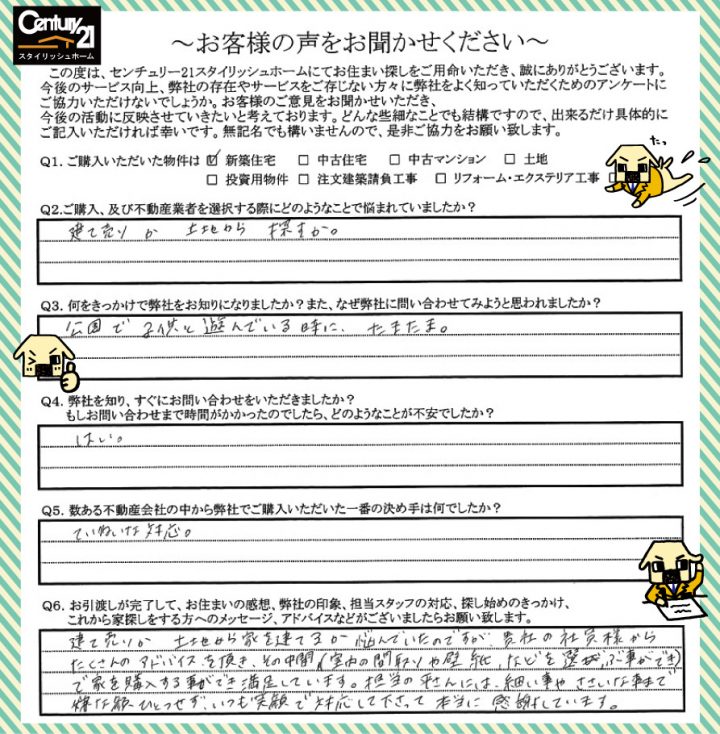 Century 21
スタイリッシュホーム
～お客様の声をお聞かせください～
この度は、センチュリー21スタイリッシュホームにてお住まい探しをご用命いただき、誠にありがとうございます。
今後のサービス向上、弊社の存在やサービスをご存じない方々に弊社をよく知っていただくためのアンケートに
ご協力いただけないでしょうか。お客様のご意見をお聞かせいただき、
今後の活動に反映させていきたいと考えております。どんな些細なことでも結構ですので、出来るだけ具体的に
ご記入いただければ幸いです。無記名でも構いませんので、是非ご協力をお願い致します。
Q1. ご購入いただいた物件は ☑ 新築住宅 □ 中古住宅 □ 中古マンション □ 土地
□ 投資用物件 □ 注文建築請負工事 □ リフォーム・エクステリア工事
たっ
Q2.ご購入、及び不動産業者を選択する際にどのようなことで悩まれていましたか?
建て売りか 土地から 探すか。
Q3. 何をきっかけで弊社をお知りになりましたか?また、なぜ弊社に問い合わせてみようと思われましたか?
公園で子供と遊んでいる時に、たまたま。
Q4. 弊社を知り、すぐにお問い合わせをいただきましたか?
もしお問い合わせまで時間がかかったのでしたら、どのようなことが不安でしたか?
はい。
Q5. 数ある不動産会社の中から弊社でご購入いただいた一番の決め手は何でしたか?
ていねいな対応。
Q6. お引渡しが完了して、お住まいの感想、弊社の印象、担当スタッフの対応、探し始めのきっかけ、
これから家探しをする方へのメッセージ、アドバイスなどがございましたらお願い致します。
建て売りか 土地から家を建てるか 悩んでいたのですが、貴社の社員様から
たくさんのアドバイスを頂き、その中間(室内の間取りや壁紙、などを選ぶ事ができ)
で家を購入する事ができ満足しています。担当の さんには、細い事やささいな事まで
嫌な顔ひとつせず、いつも笑顔で対応して下さって 本当に 感謝しています。